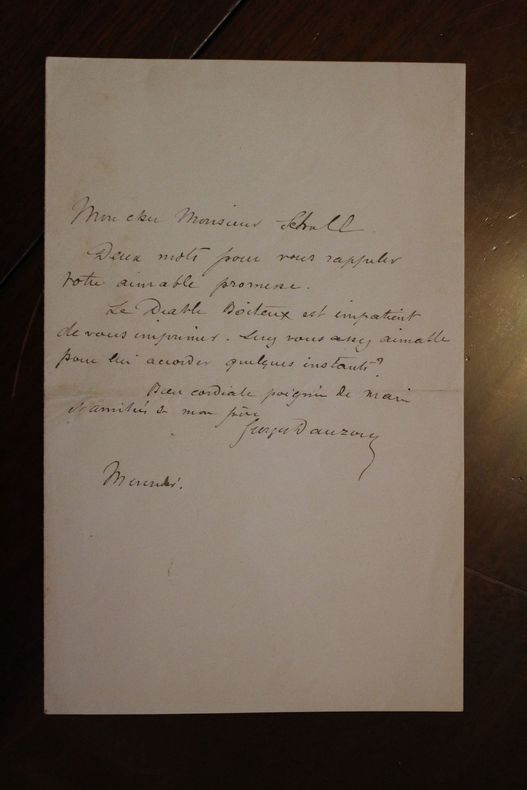 Mon cher Monsieur Scholl
Deux mots pour vous rappeler
votre aimable promesse.
Le Diable Boiteux est impatient
de vous imprimer. Serez vous assez aimable
pour lui accorder quelques instants?
Bien cordiale poignée de main
& amitiés de mon père
Georges Dauzon